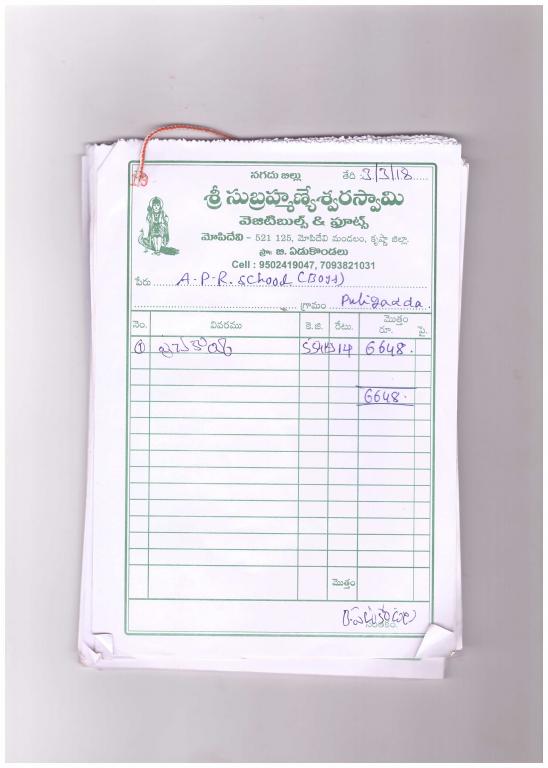 నగదు బిల్లు తేది 3/3/18
శ్రీ సుబ్రహ్మణ్యేశ్వరస్వామి
వెజిటిబుల్స్ & ఫ్రూట్స్
మోపిదేవి - 521 125, మోపిదేవి మండలం, కృష్ణా జిల్లా.
ప్రొ: బి. ఏడుకొండలు
Cell : 9502419047, 7093821031
పేరు A.P.R. School (Boys)
గ్రామం Puligadda.
నెం. వివరము కె.జి. రేటు. మొత్తం రూ. పై.
① 14 6648.
6648.
మొత్తం
సంతకం.